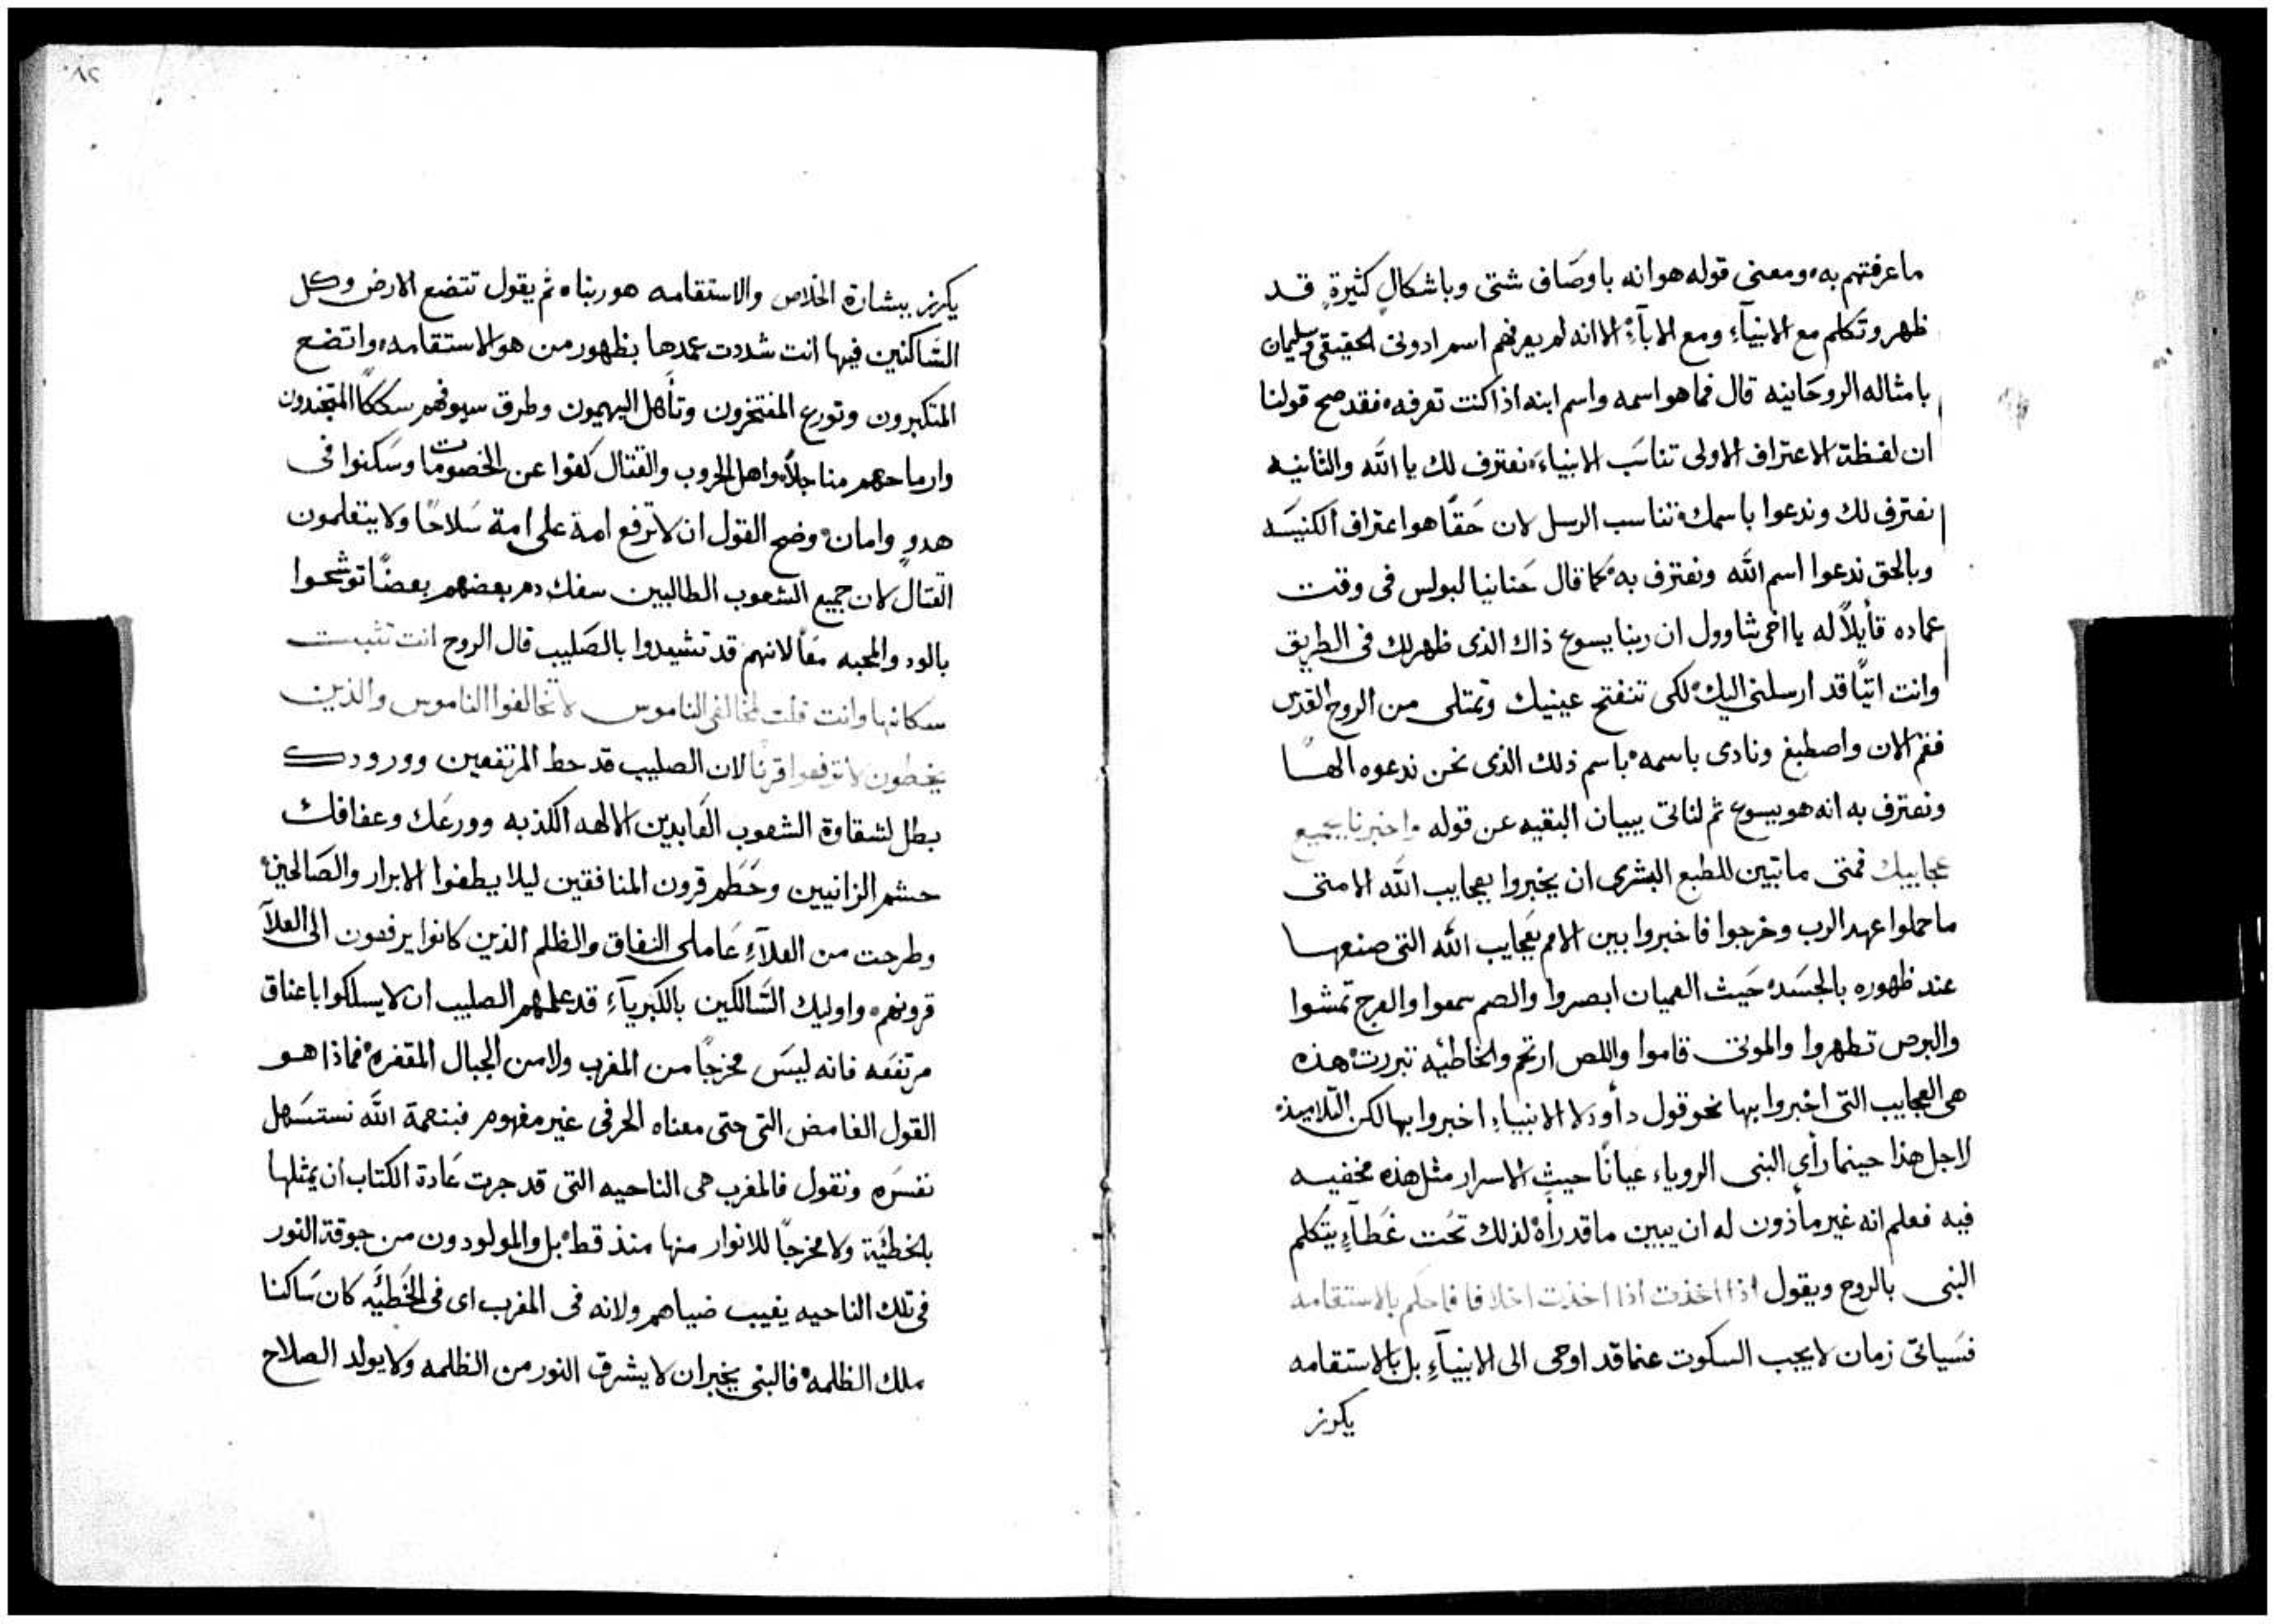 ما عرفتهم به، ومعنى قوله هو انه باوصَاف شتى وباشكالٍ كثيرةٍ قد
ظهر وتكلم مع الانبيآءِ ومع الابآءِ الا انه لم يعرفهم اسم ادوني الحقيقي وسليمان
بامثاله الروحَانيه قال فما هو اسمه واسم ابنه اذا كنت تعرفه، فقد صح قولنا
ان لفظة الاعتراف الاولى تناسَب الانبياء، نعترف لك يا الله والثانيه
نعترف لك وندعوا باسمك، تناسب الرسل لان حَقًا هو اعتراف الكنيسَه
وبالحق ندعوا اسم الله ونعترف به، كما قال حَنانيا لبولس فى وقت
عماده قأيلاً له يا اخى شاوول ان ربنا يسوع ذاك الذى ظهر لك فى الطريق
وانت اتيًا قد ارسلنى اليك، لكى تنفتح عينيك وتمتلى من الروح القدس
فقم الان واصطبغ ونادى باسمه، باسم ذلك الذى نحن ندعوه الهًا
ونعترف به انه هو يسوع ثم لناتى ببيان البقيه عن قوله واخبرنا بجميع
عجاييك فمتى ما تبين للطبع البشرى ان يخبروا بعجايب الله الا متى
ما حملوا عهد الرب وخرجوا فاخبروا بين الامم بعجايب الله التى صنعها
عند ظهوره بالجسَد، حَيث العميان ابصروا والصم سمعوا والعرج تمشوا
والبرص تطهروا والموتى قاموا واللص ارتحم والخاطيه تبررت، هذه
هى العجايب التى اخبروا بها نحو قول دأود لا الانبياءِ اخبروا بها لكن التلاميذ،
لاجل هذا حينما رأى النبى الروياء عيانًا حيث الاسرار مثل هذه مخفيه
فيه فعلم انه غير مأذون له ان يبين ما قد رأه، لذلك تحُت غَطآءٍ يتكلم
النبى بالروح ويقول اذا اخذت اذا اخذت اخلافا فاحكم بالاستقامه
فسَياتى زمان لا يجب السكوت عنما قد اوحى الى الانبيآءِ بل بالاستقامه
يكرز
يكرز ببشارة الخلاص والاستقامه هو ربنا، ثم يقول تتضع الارض وكل
السَاكنين فيها انت شددت عمدها بظهور من هو الاستقامه، واتضع
المتكبرون وتورع المفتخرون وتأهل البهيمون وطرق سيوفهم سككًا المتجندون
وارماحهم مناجلاً، واهل الحروب والقتال كفوا عن الخصومات وسَكنوا فى
هدوٍ وامان، وضح القول ان لا ترفع امة على امة سَلاحًا ولا يتعلمون
القتال، لان جميع الشعوب الطالبين سفك دم بعضهم بعضًا توشحوا
بالود والمحبه معًا لانهم قد تشيدوا بالصَليب قال الروح انت ثبت
سكانها وانت قلت لمخالفى الناموس لا تخالفوا الناموس والذين
يخطون لا ترفعوا قرنًا لان الصليب قد حط المرتفعين وورودك
بطل لشقاوة الشعوب العَابدين الالهه الكذبه وورعَك وعفافك
حشم الزانيين وحَطَم قرون المنافقين ليلا يطغوا الابرار والصَالحين،
وطرحت من العلآءِ عَاملى النفاق والظلم الذين كانوا يرفعون الى العلآ
قرونهم، واوليك السَالكين بالكبريآءِ قد علمهم الصليب ان لا يسلكوا باعناق
مرتفعَه فانه ليسَ مخرجًا من المغرب ولا من الجبال المقفره، فماذا هو
القول الغامض التى حتى معناه الحرفى غير مفهوم فبنعمة الله نستسَهل
نفسَره ونقول فالمغرب هى الناحيه التى قد جرت عَادة الكتاب ان يمثلها
بالخطيَة ولا مخرجًا للانوار منها منذ قط، بل والمولودون من جوقة النور
فى تلك الناحيه يغيب ضياهم ولانه فى المغرب اى فى الخَطيَّه كان سَاكنا
ملك الظلمه، فالنبى يخبر ان لا يشرق النور من الظلمه ولا يولد الصلاح